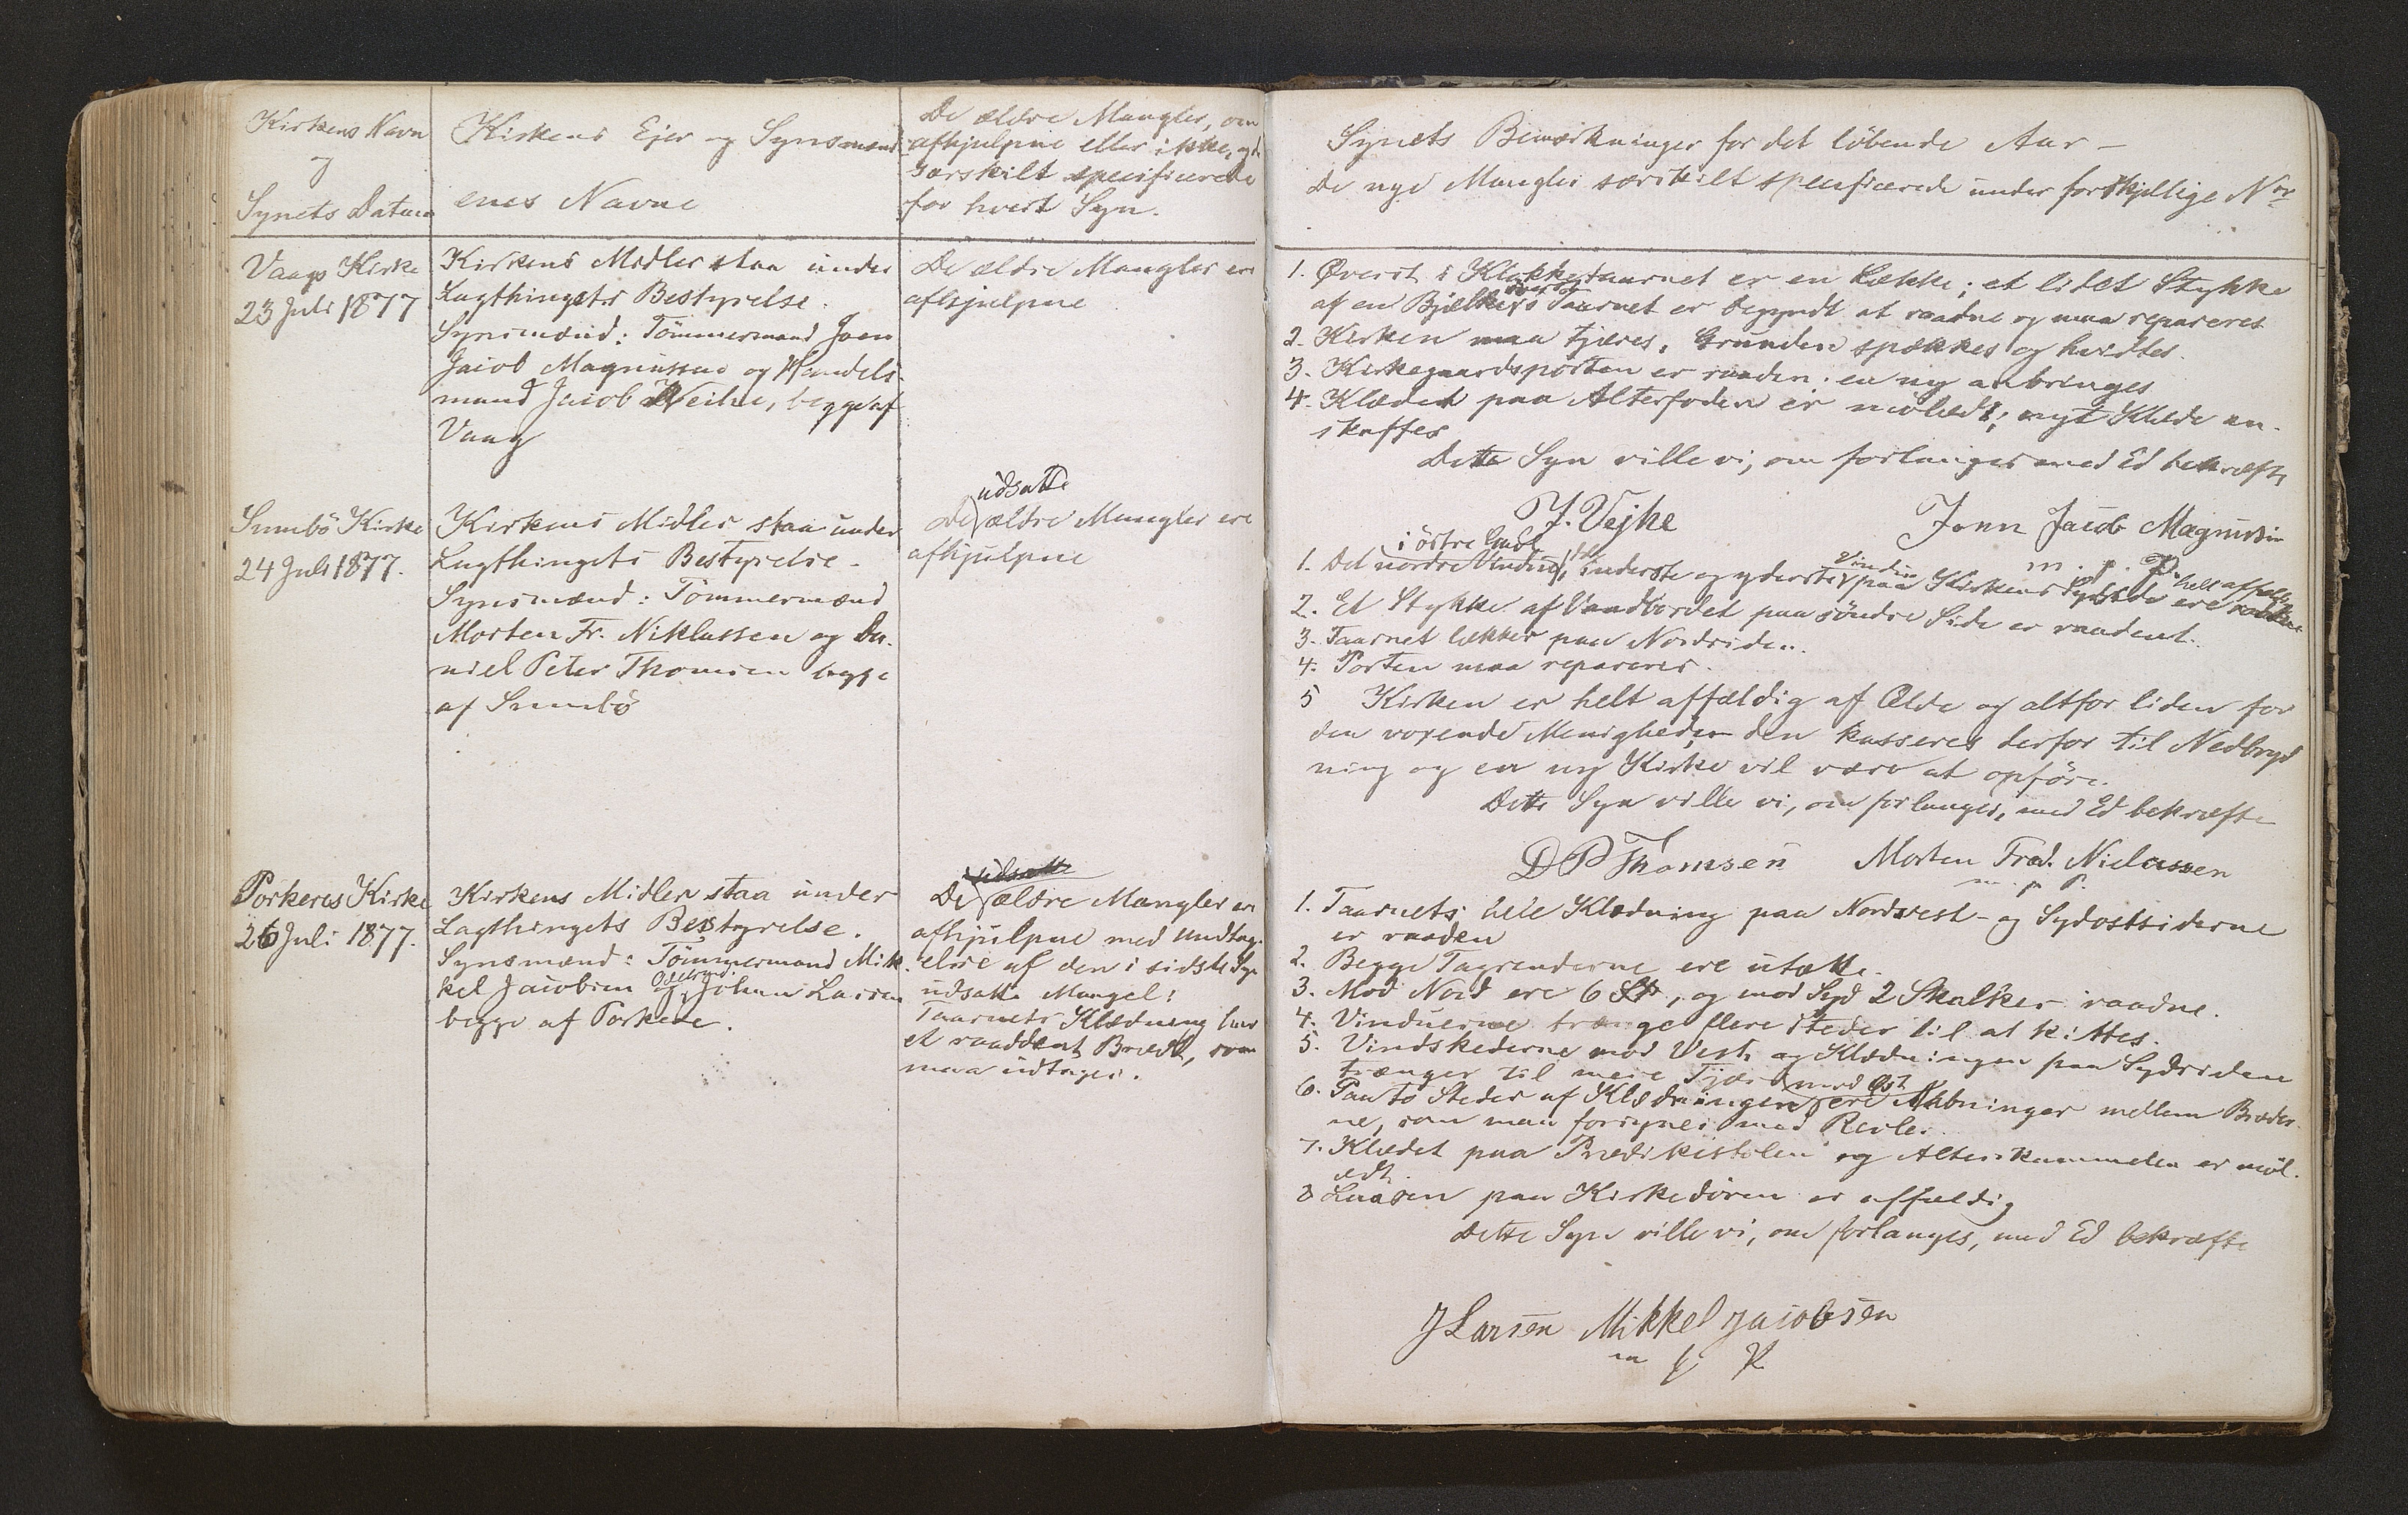 Kirkens Navn
og
Synets Datum
Kirkens Ejer og Synsmænd
enes Navne
De ældre Mangler, om
afhjulpne eller ikke, og de
særskilt specificerede
for hvert Syn.
Vaags Kirke
23 Juli 1877
Kirkens Midler staa under
Lagthingets Bestyrelse.
Synsmænd: Tömmermand Joen
Jacob Magnussen og Handels-
mand Jacob Weihe, begge af
Vaag
De ældre Mangler ere
afhjulpne
Sumbö Kirke
24 Juli 1877.
Kirkens Midler staa under
Lagthingets Bestyrelse.
Synsmænd: Tömmermænd
Morten Fr. Niklassen og Da-
niel Peter Thomsen begge
af Sumbö
udsatte
De ældre Mangler ere
afhjulpne
Porkeres Kirke
26 Juli 1877.
Kirkens Midler staa under
Lagthingets Bestyrelse.
Synsmænd: Tömmermand Mik-
kel Jacobsen og Johan Larsen
begge af Porkere.
udsatte
De ældre Mangler ere
afhjulpne med Undtag-
else af den i sidste Syn
udsatte Mangel:
Taarnets Klædning har
et raaddent Bræt, som
maa udtages.
Synets Bemærkninger for det löbende Aar –
de nye Mangler særskilt specificerede under forskjellige Nor
1. Øverst i Klokketaarnet er en Lække; et lidet Stykke
øverst
af en Bjælke i Taarnet er begyndt at raadne og maa repareres
2. Kirken maa tjæres, Grunden spækkes og hvidtes.
3. Kirkegaardsporten er raaden; en ny anbringes
4. Klædet paa Alterfoden er mölædt; nyt Klæde an-
skaffes
Dette Syn ville vi, om forlanges med Ed bekræfte
J. Vejhe Joen Jacob Magnussen
m. p. P.
i östre Gavl
1. Det nordre Vindue, det inderste og yderste Vindue paa Kirkens Sydside ere helt affældige
2. Et Stykke af Vandbordet paa söndre Side er raadent.
3. Taarnet lækker paa Nordsiden.
4. Porten maa repareres.
5 Kirken er helt affældig af Ælde og altfor liden for
den voxende Menighed; den kasseres derfor til Nedbryd
ning og en ny Kirke vil være at opföre.
Dette Syn ville vi, om forlanges, med Ed bekræfte
D P Thomsen Morten Fred. Niclassen
m. p. P.
1. Taarnets hele Klædning paa Nordvest- og Sydostsiderne
er raaden
2. Begge Tagrenderne ere utætte.
3. Mod Nord ere 6 St, og mod Syd 2 Skalker raadne.
4. Vinduerne trænge flere Steder til at kittes.
5. Vindskederne mod Vest og Klædningen paa Sydsiden
trænger til mere Tjære
mod Øst
6. Paa to Steder af Klædningen ere Aabninger mellem Bræder-
ne, som maa forsynes med Revler.
7. Klædet paa Prædikestolen og Alterskammelen er möl-
ædt.
8 Laasen paa Kirkedören er affældig
Dette Syn ville vi, om forlanges, med Ed bekræfte
J Larsen Mikkel Jacobsen
m p P.